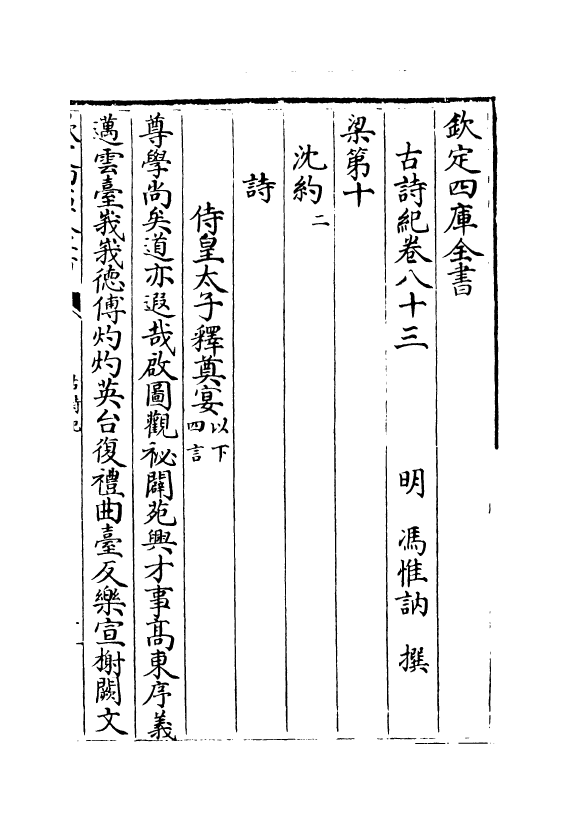 欽定四庫全書
古詩紀卷八十三　明　馮惟訥　撰
梁第十
沈約二
詩
侍皇太子釋奠宴以下四言
尊學尚矣道亦遐哉啟圖觀祕闢苑興才事髙東序義
邁雲臺莪莪徳傅灼灼英台復禮曲臺反樂宣榭闕文